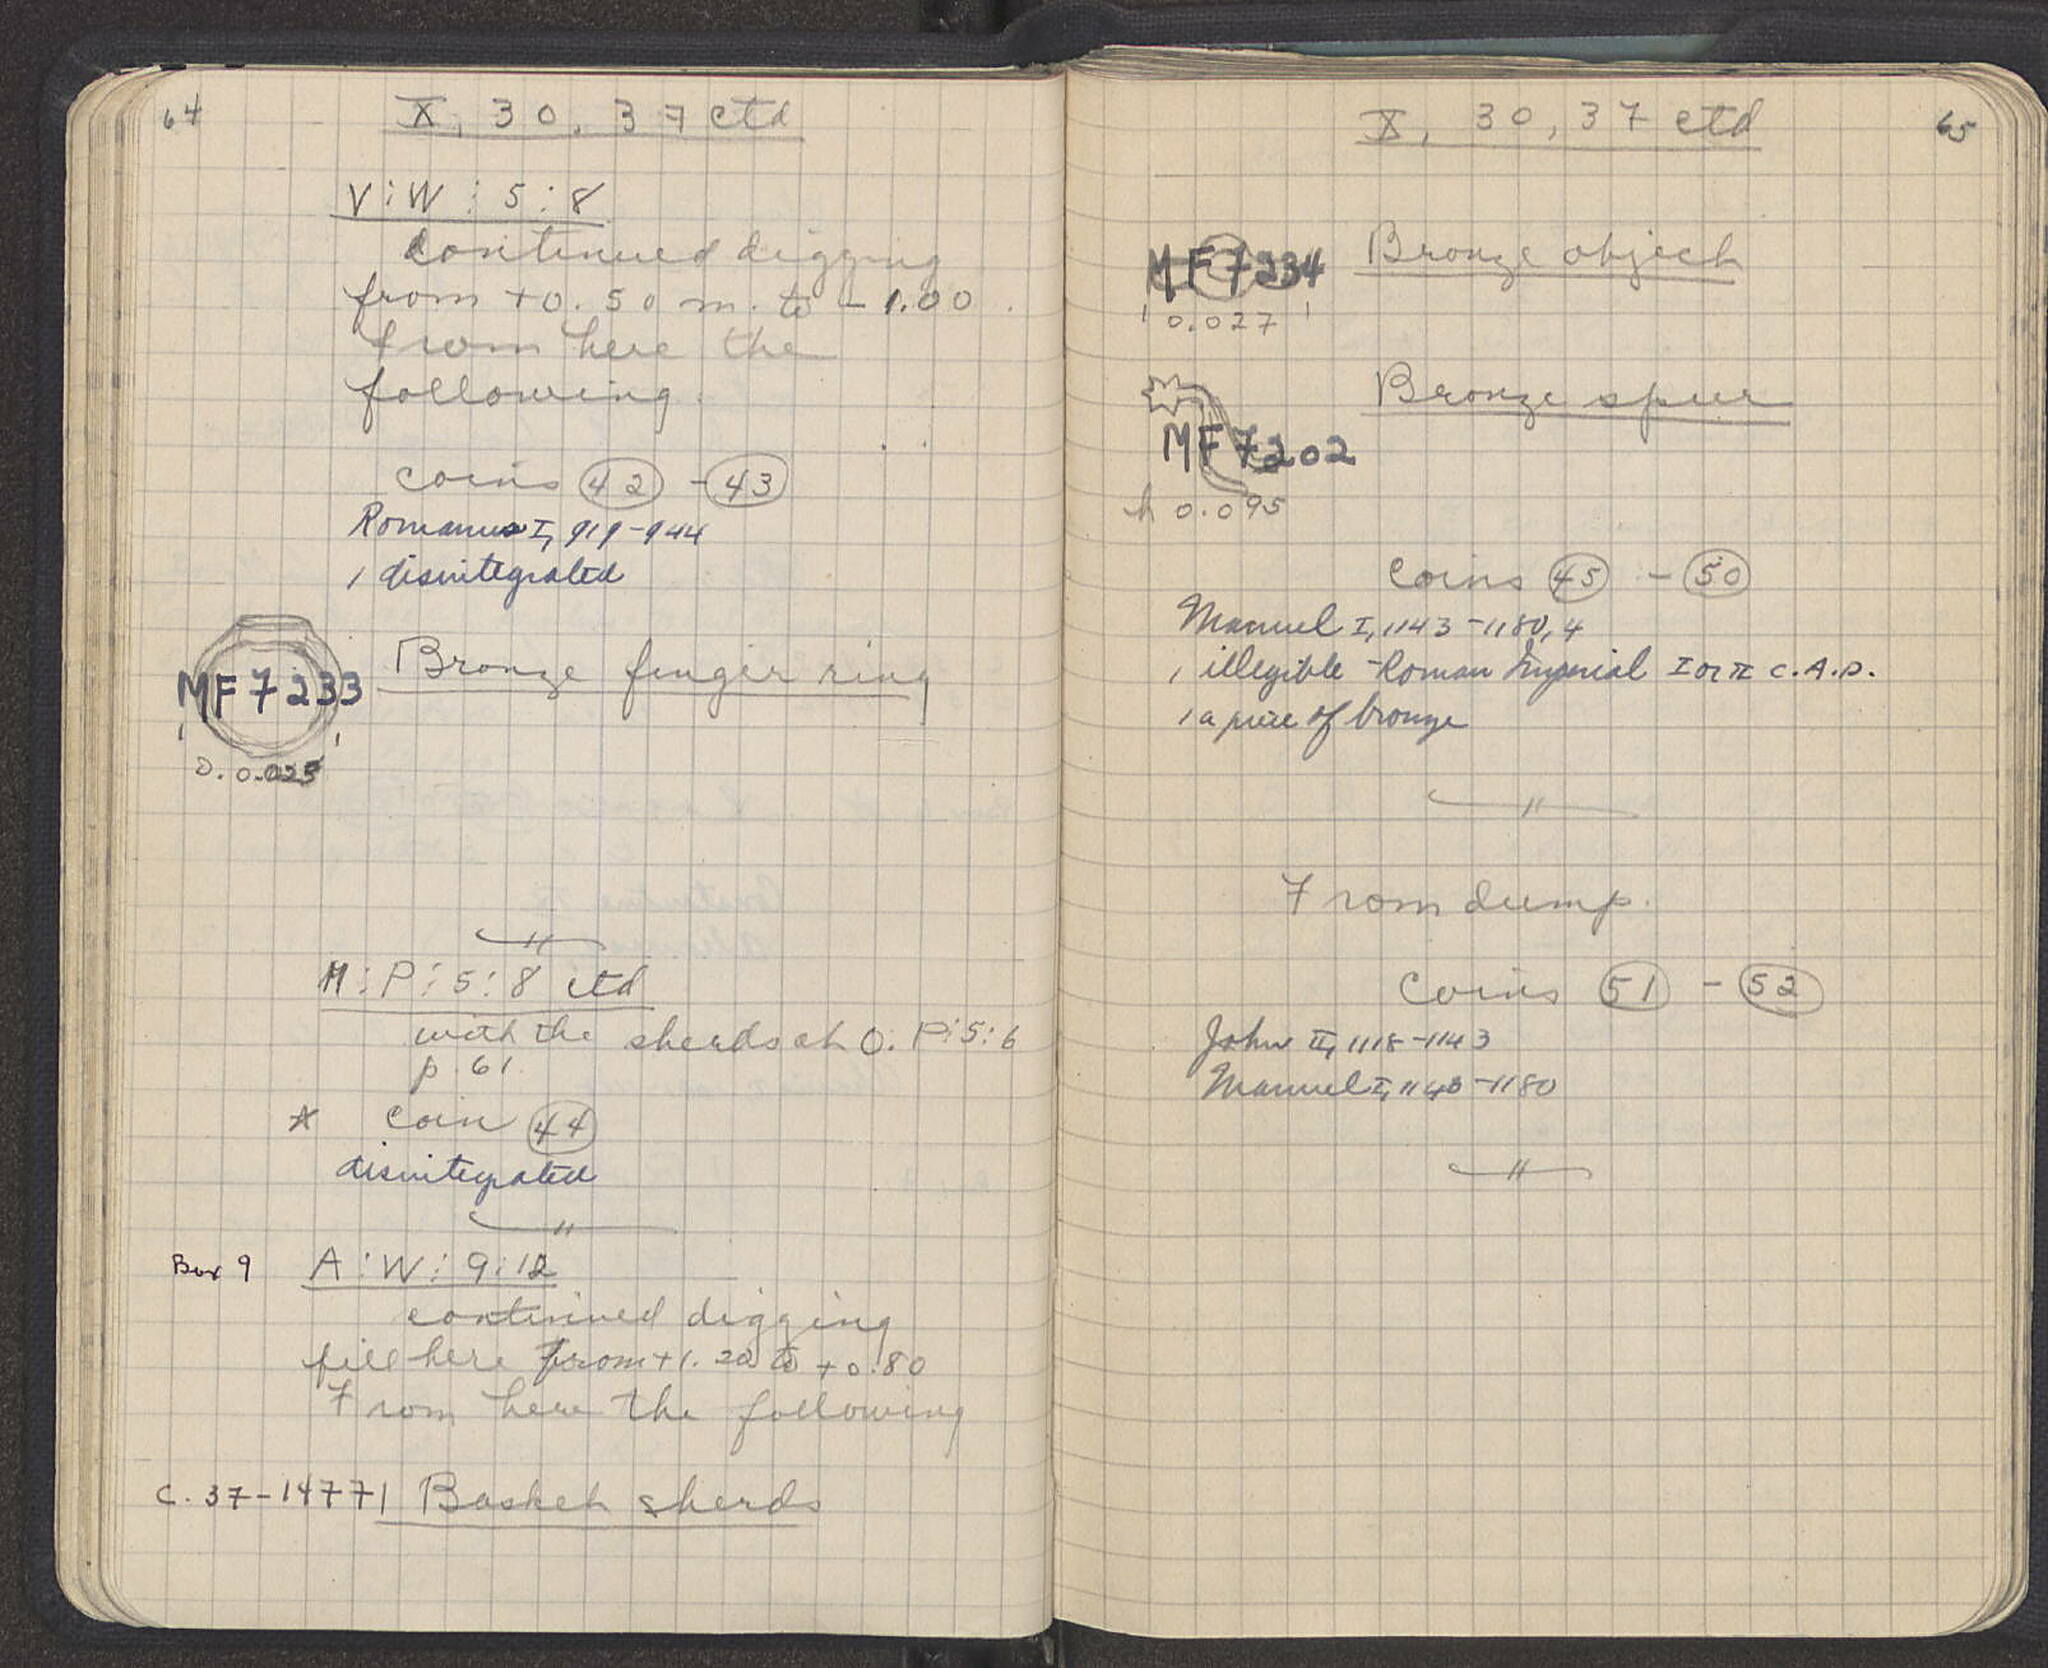 64
X, 30, 37 ctd
V:W:5:8
continued digging
from +0.50 m. to -1.00.
from here the
following.
coins 42 - 43
Romanus I, 919-944
1 disintegrated
MF 7233
Bronze finger ring
D. 0.025
M:P:5:8 ctd
with the sherds at O:P:5:6
p. 61.
* coin 44
disintegrated
Box 9 A:W:9:12
continued digging
fill here from +1.20 to +0.80
From here the following
C.37-1477 1 Basket sherds
65
X, 30, 37 ctd
MF 7234 Bronze object
0.027
Bronze spur
MF 7202
h 0.095
coins 45 - 50
Manuel I, 1143-1180, 4
1 illegible - Roman Imperial I or II C. A.D.
1 a piece of bronze
From dump.
coins 51 - 52
John II, 1118-1143
Manuel I, 1143-1180